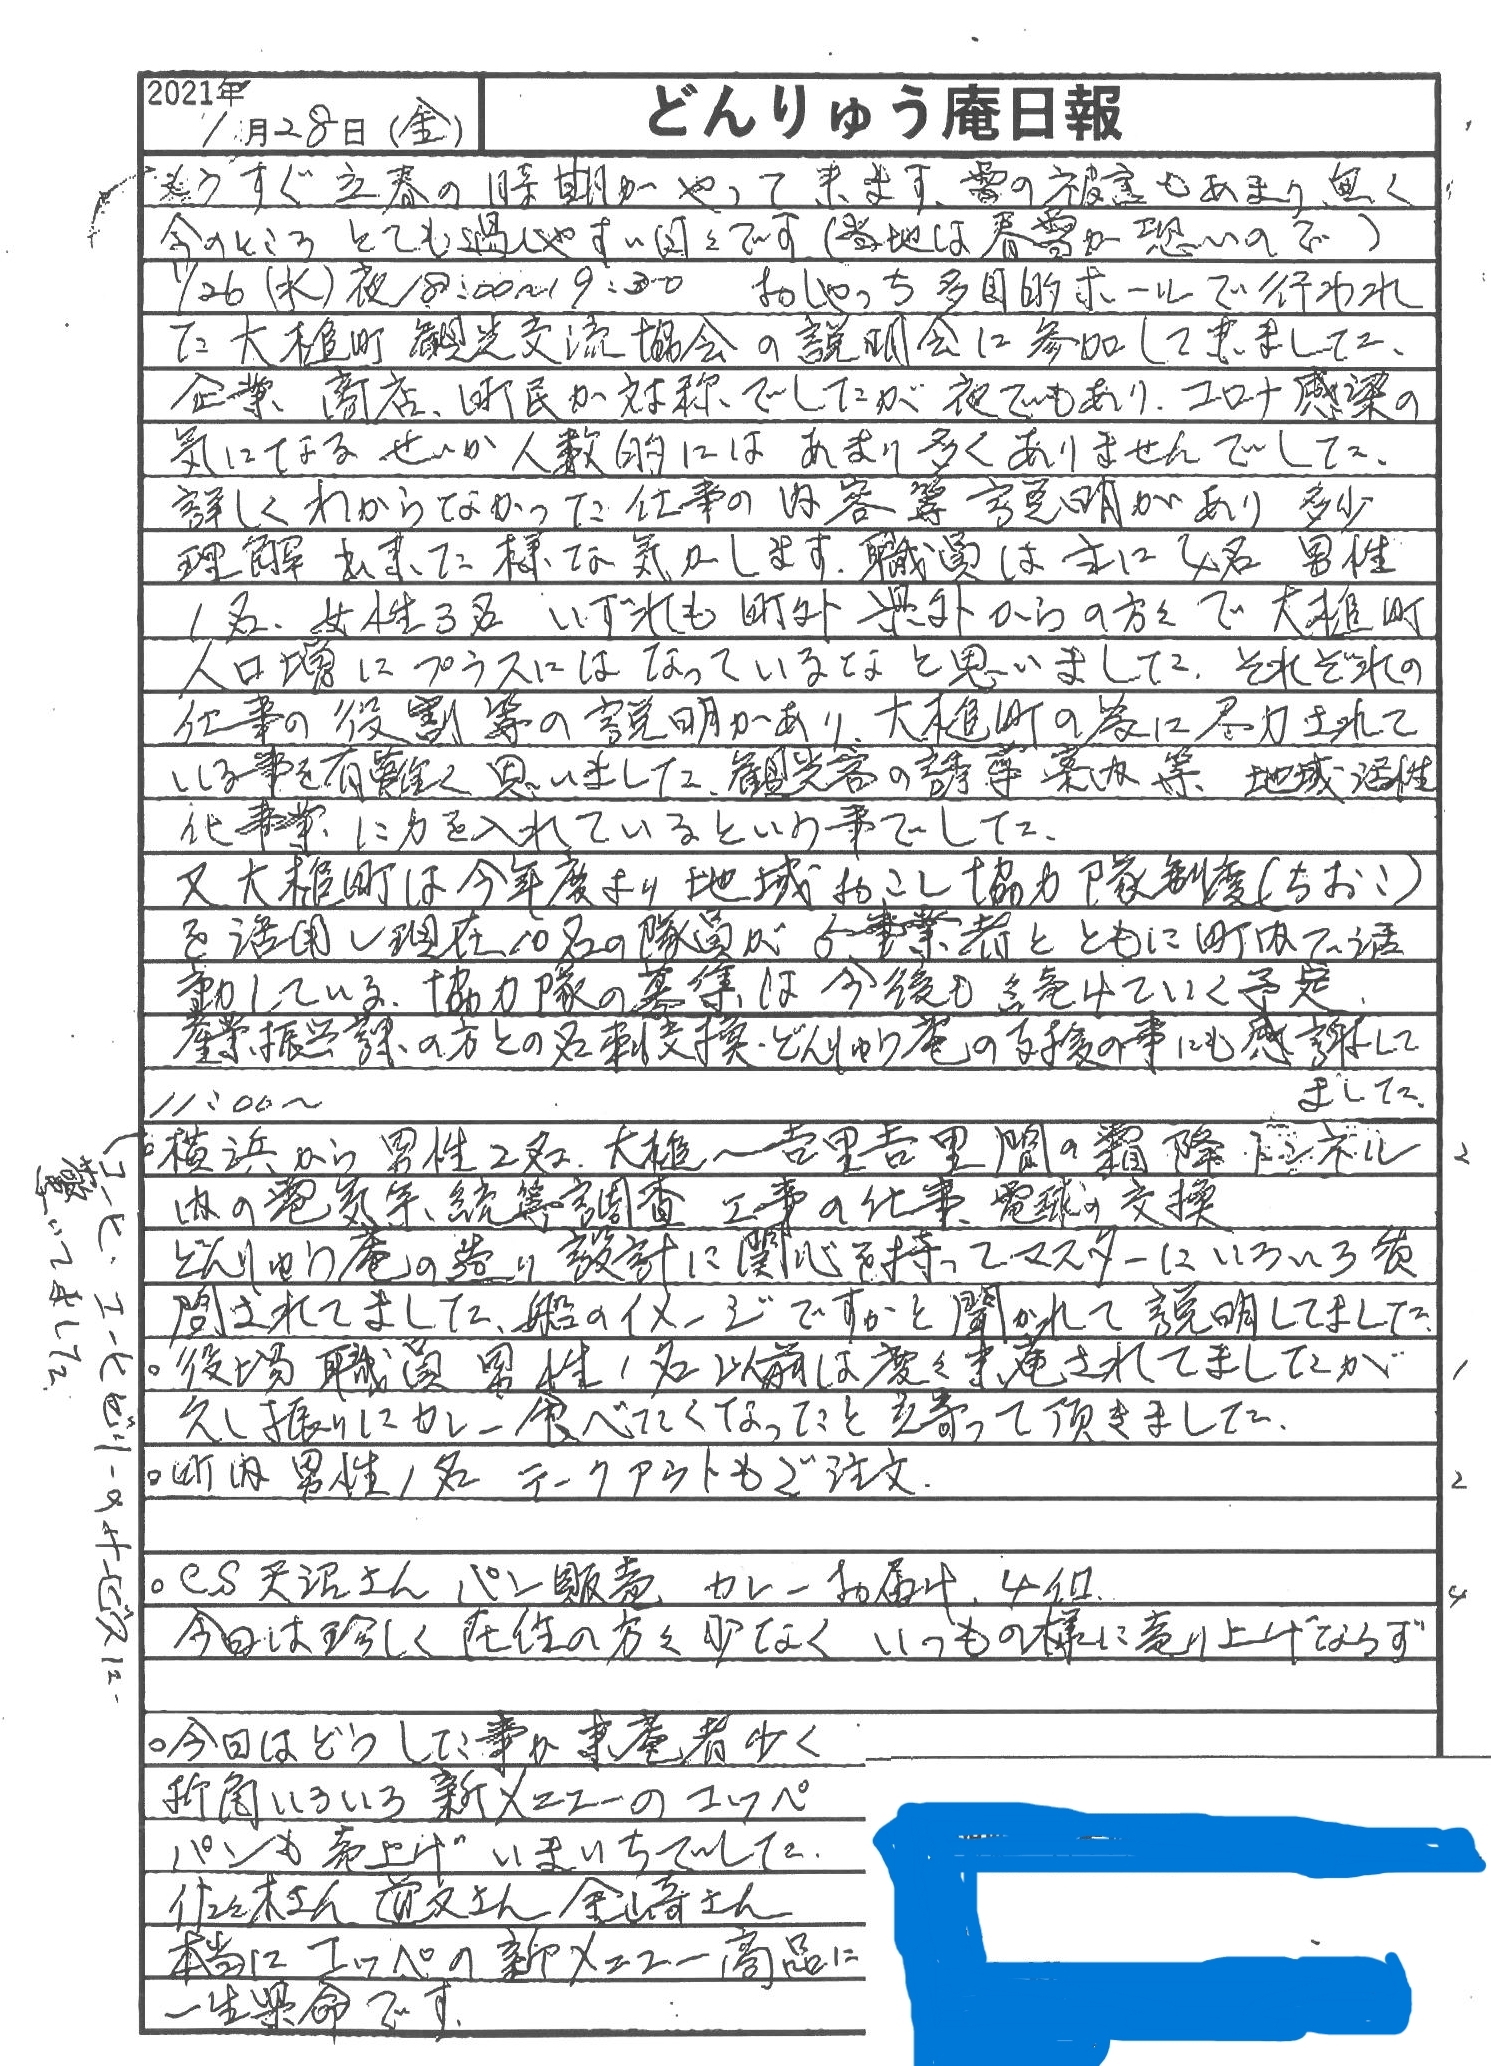 2021年
1月28日(金)
どんりゅう庵日報
もうすぐ立春の時期がやって来ます、雪の被害もあまり無く
今のところ とても過しやすい日々です(当地は春雪が恐いので)
1/26(水)夜18:00~19:30 おしゃっち多目的ホールで行われ
た大槌町観光交流協会の説明会に参加して来ました、
企業、商店、町民が対称でしたが夜でもあり、コロナ感染の
気になるせいか人数的には あまり多くありませんでした、
詳しくわからなかった仕事の内容等説明があり 多少
理解出来た様な気がします、職員は主に4名 男性
1名、女性3名 いずれも町外 県外からの方々で大槌町
人口増にプラスにはなっているなと思いました、それぞれの
仕事の役割等の説明があり、大槌町の為に尽力されて
いる事を有難く思いました、観光客の誘導案内等、地域活性
化事業に力を入れているという事でした、
又大槌町は今年度より地域おこし協力隊制度(ちおこ)
を活用し現在10名の隊員が6事業者とともに町内で活
動している、協力隊の募集は今後も続けていく予定、
産業振興課の方との名刺交換、どんりゅう庵の支援の事にも感謝して
ました、
11:00~
○横浜から男性2名、大槌~吉里吉里間の霜降トンネル 2
内の電気系統等調査 工事の仕事、電球の交換
どんりゅう庵の造り設計に関心を持ってマスターにいろいろ質
問されてました、船のイメージですかと聞かれて説明してました、
○役場職員男性1名以前は度々来庵されてましたが 1
久し振りにカレー食べたくなったと立寄って頂きました、
○町内男性1名 テークアウトもご注文、 2
○CS天沼さん パン販売 カレーお届け、4個、 4
今日は珍しく在住の方々少なく いつもの様に売り上げならず
○今日はどうした事か来庵者少く
折角いろいろ新メニューのコッペ
パンも売上げいまいちでした、
佐々木さん 前又さん 金崎さん
本当にコッペの新メニュー商品に
一生懸命です、
コーヒー、コーヒゼリーのサービスに
驚いてました、